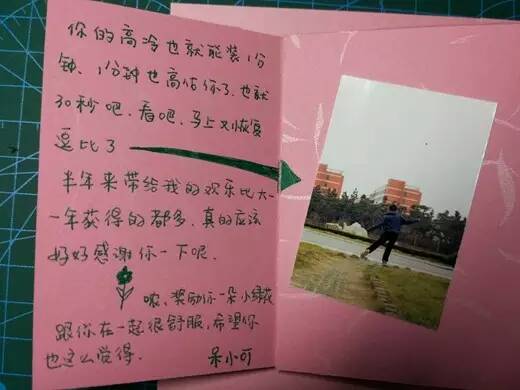 你的高冷也就能装1分
钟、1分钟也高估你了.也就
30秒吧.看吧.马上又恢复
逗比了
半年来带给我的欢乐比大一
一年获得的都多.真的应该
好好感谢你一下呢.
嗯、奖励你一朵小绿花
跟你在一起很舒服,希望你
也这么觉得.
呆小可